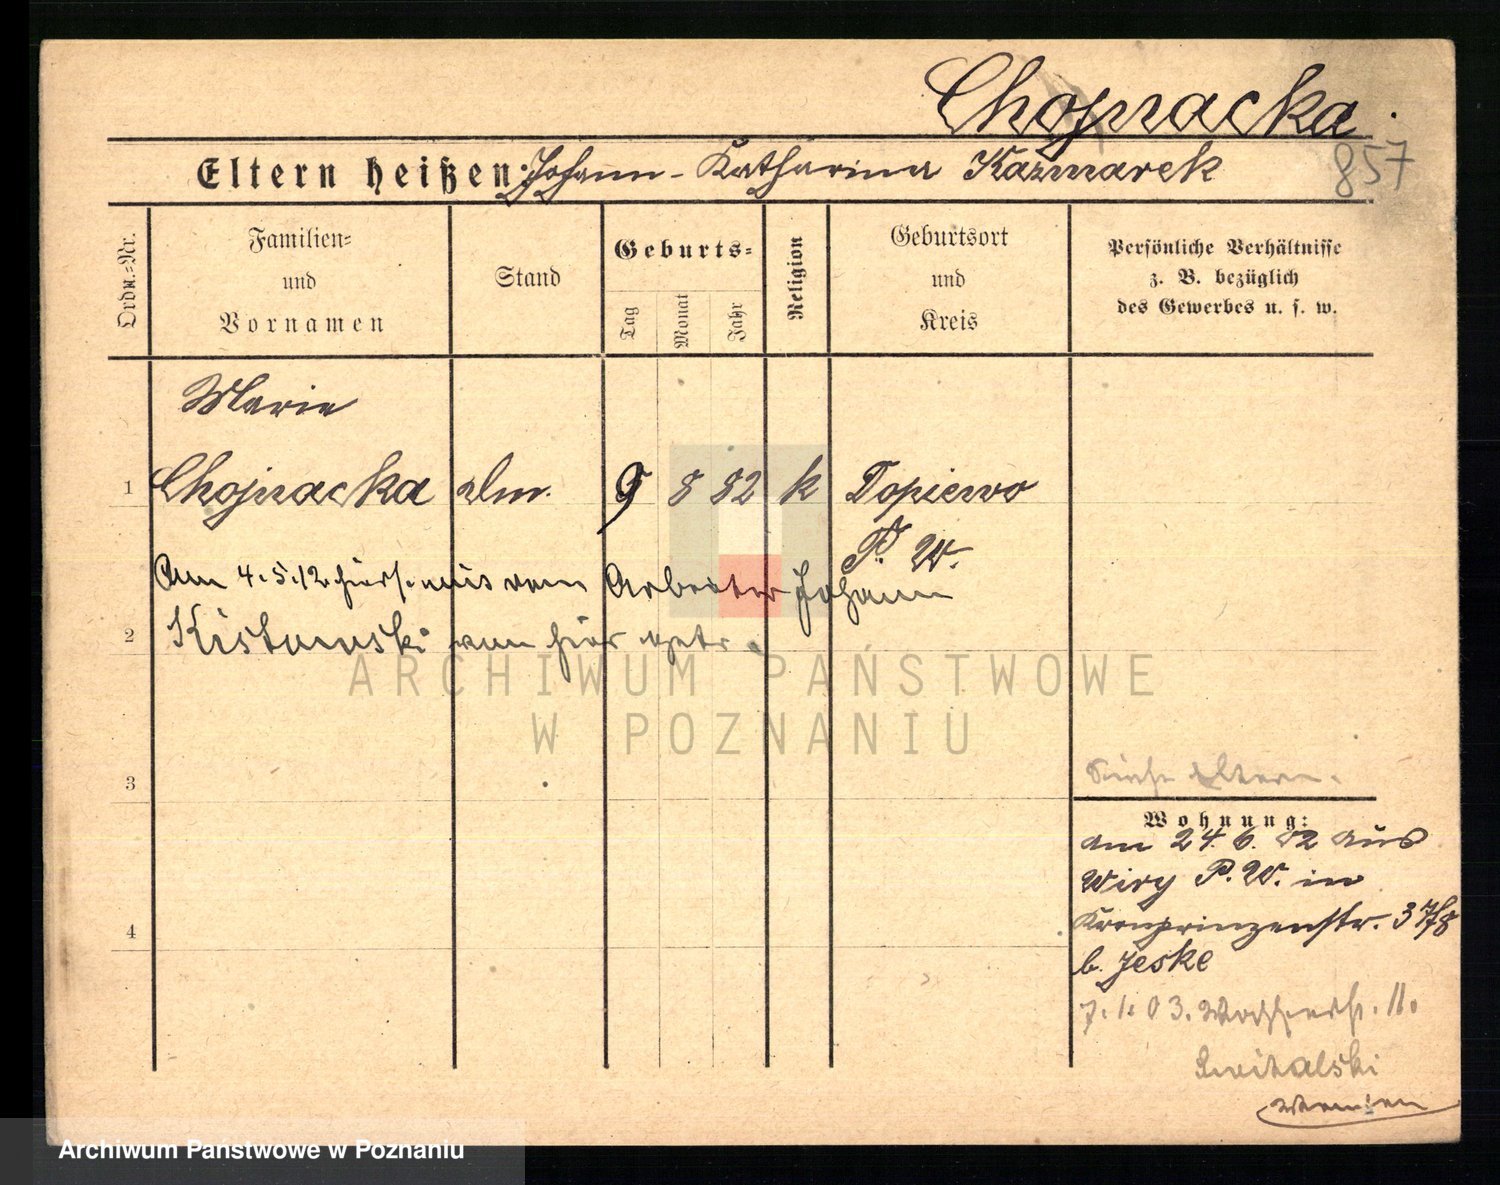 Chojnacka
857
Eltern heißen: Johann - Katharina Kazmarek
Ordn.=Nr.
Familien=
und
Vornamen
Stand
Geburts=
Tag
Monat
Jahr
Religion
Geburtsort
und
Kreis
Persönliche Verhältnisse
z. B. bezüglich
des Gewerbes u. s. w.
Marie
1 Chojnacka 9 8 82 k Dopiewo
P. W.
Am 4.5.12 hiers. aus vom Arbeiter Johann
2 von hier
3
Siehe Eltern.
Wohnung:
am 24. 6. 02 aus
Wiry P. W. in
4 Kronprinzenstr.
b. Jeske
7. 1. 03. 11.
Switalski
ARCHIWUM PAŃSTWOWE
W POZNANIU
Archiwum Państwowe w Poznaniu